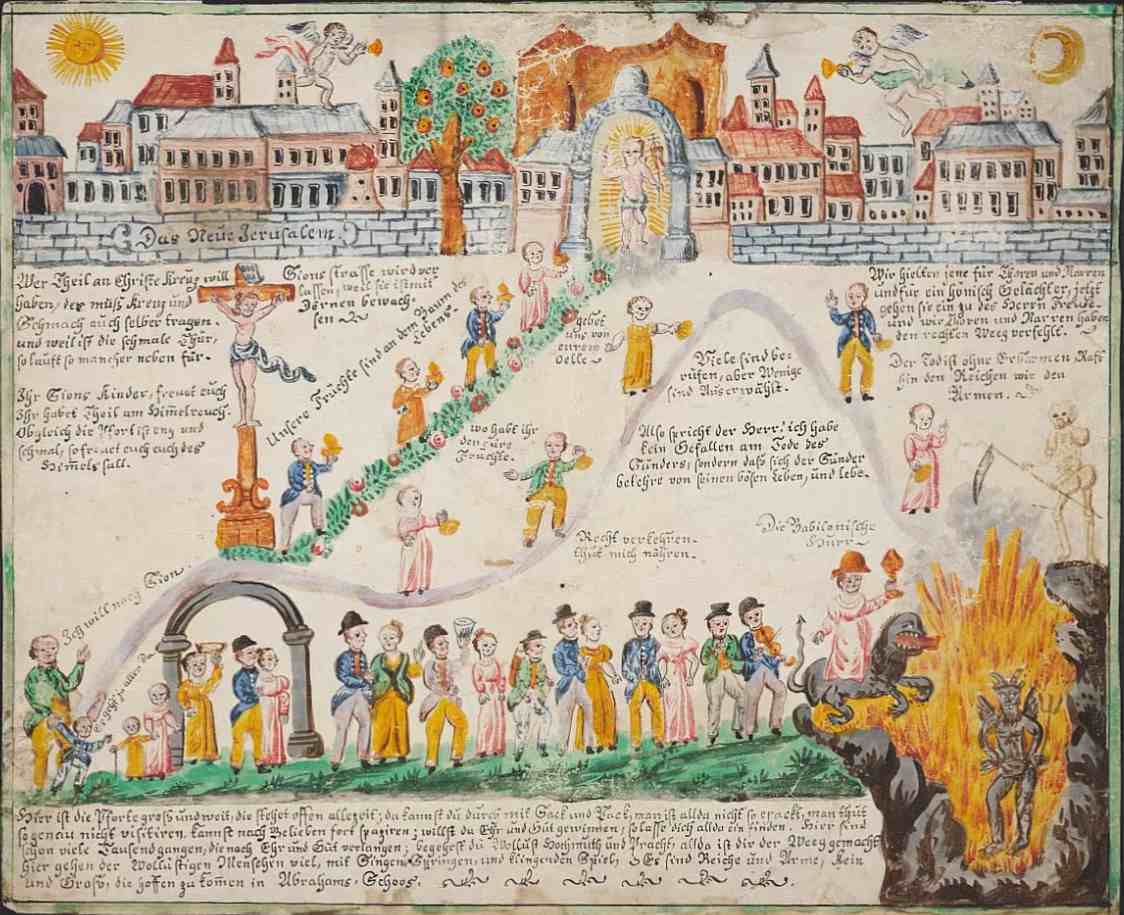 Das Neue Jerusalem.
Wer Theil an Christi Kreuz will
haben, der muß Kreuz und
Schmach auch selber tragen.
und weil ist die schmale Thür,
so lauft so mancher neben für.
Ihr Sions Kinder, freuet euch
Ihr habet Theil am Himelreuch.
Obgleich die Pfort ist eng und
schmal, so freuet euch euch des
Himels sall.
Sions strasse wird ver
lassen, weil sie ist mit
Dörnen bewach-
sen
Unsere Früchte sind an dem Baum des
Lebens.
gebet
uns von
eurem
Oelle
wo habt ihr
den eure
Früchte.
Viele sind be-
rüfen, aber Wenige
sind Auserwählt.
Also spricht der Herr: ich habe
kein Gefallen am Tode des
Sünders, sondern daß sich der Sünder
bekehre von seinen bösen Leben, und lebe.
Recht verkehren
thut mich nähren.
Wir hielten jene für Thoren und Narren
und für ein hönisch Gelächter, jetzt
gehen sie ein zu des Herrn Freude
und wir Thoren und Narren haben
den rechten Weeg verfehlt.
Der Tod ist ohne Erbarmen, Raft
hin den Reichen wie den
Armen.
Die Babilonische
Hurr
Ich will nach Sion.
zu aller da
Hier ist die Pforte groß und weit, die stehet offen allezeit; da kannst du durch mit Sack und Pack, man ist allda nicht so exackt, man thut
so genau nicht visitiren, kannst nach Belieben fort spaziren; willst du Ehr und Gut gewinnen, so lasse dich allda ein finden. Hier sind
schon viele Tausend gangen, die nach Ehr und Gut verlangen; begehrst du Wollust Hochmuth und Pracht, allda ist dir der Weeg gemacht
hier gehen der Wollüstigen Menschen viel, mit Singen, Springen, und klingenden Spiel, Es sind Reiche und Arme, Klein
und Groß, die hoffen zu komen in Abrahams Schoos.